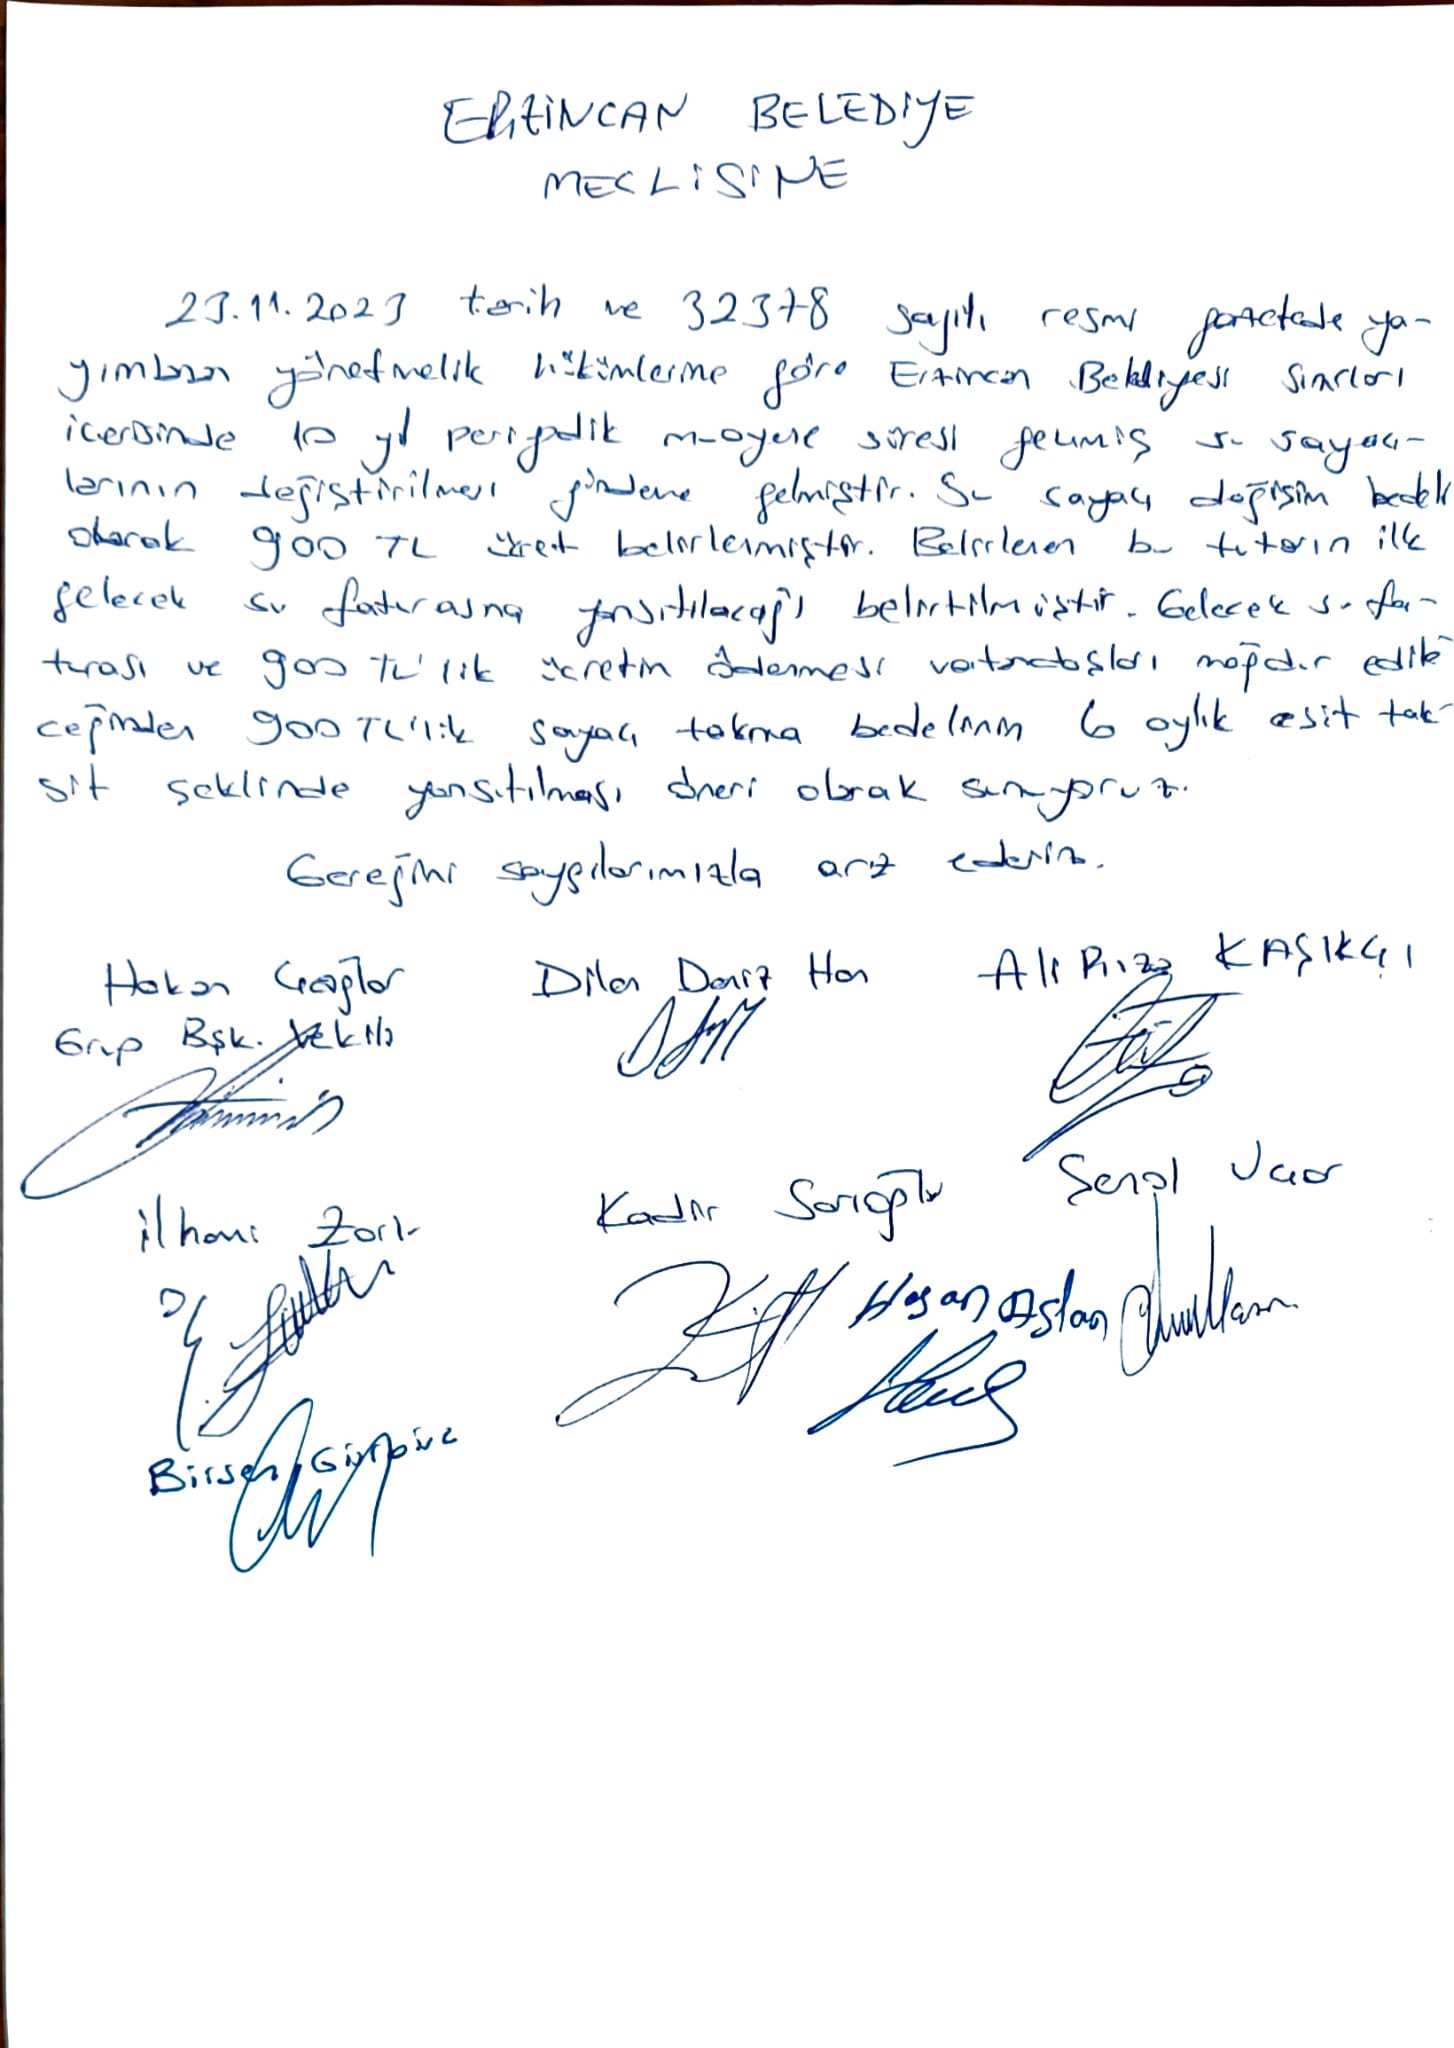 ERZİNCAN BELEDİYE
MECLİSİNE
23.11.2023 tarih ve 32378 sayılı resmi gazetede ya-
yımlanan yönetmelik hükümlerine göre Erzincan Belediyesi sınırları
içerisinde 10 yıl periyodik muayene süresi gelmiş su sayaç-
larının değiştirilmesi gündeme gelmiştir. Su sayaçı değişim bedeli
olarak 900 TL ücret belirlenmiştir. Belirlenen bu tutarın ilk
gelecek su faturasına yansıtılacağı belirtilmiştir. Gelecek su fa-
turası ve 900 TL'lik ücretin ödenmesi vatandaşları mağdur edile-
ceğinden 900 TL'lik sayaç takma bedelinin 6 aylık eşit tak-
sit şeklinde yansıtılması öneri olarak sunuyoruz.
Gereğini saygılarımızla arz ederiz.
Hakan Dilan Deniz Han Ali Rıza KAŞIKÇI
Grup Bşk. Vekili
İlhami Zorlu Kadir Sarıoğlu Şenol Uçar
Hasan Aslan
Birsen